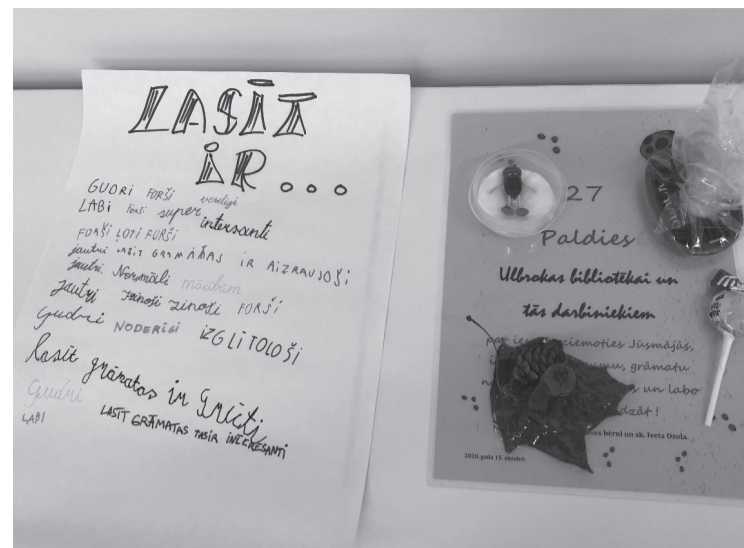 LASĪT
IR...
GUDRI FORŠI veselīgi
LABI forši super intersanti
FORŠI ĻOTI FORŠI
jautri LASĪT GRĀMATAS IR AIZRAUJOŠI
jautri. Normāli mācībām
jautri zinoši zinoši FORŠI
Gudri NODERĪGI IZGLĪTOLOŠI
lasīt grāmatas ir
Gudri
LABI LASĪT GRĀMATAS TASIR INTERESANTI
27
Paldies
Ulbrokas bibliotēkai un
tās darbiniekiem
ciemoties Jūsmājās,
grāmatu
un labo
bērni un sk. Iveta Ozola.
2020. gada 15. oktobrī.